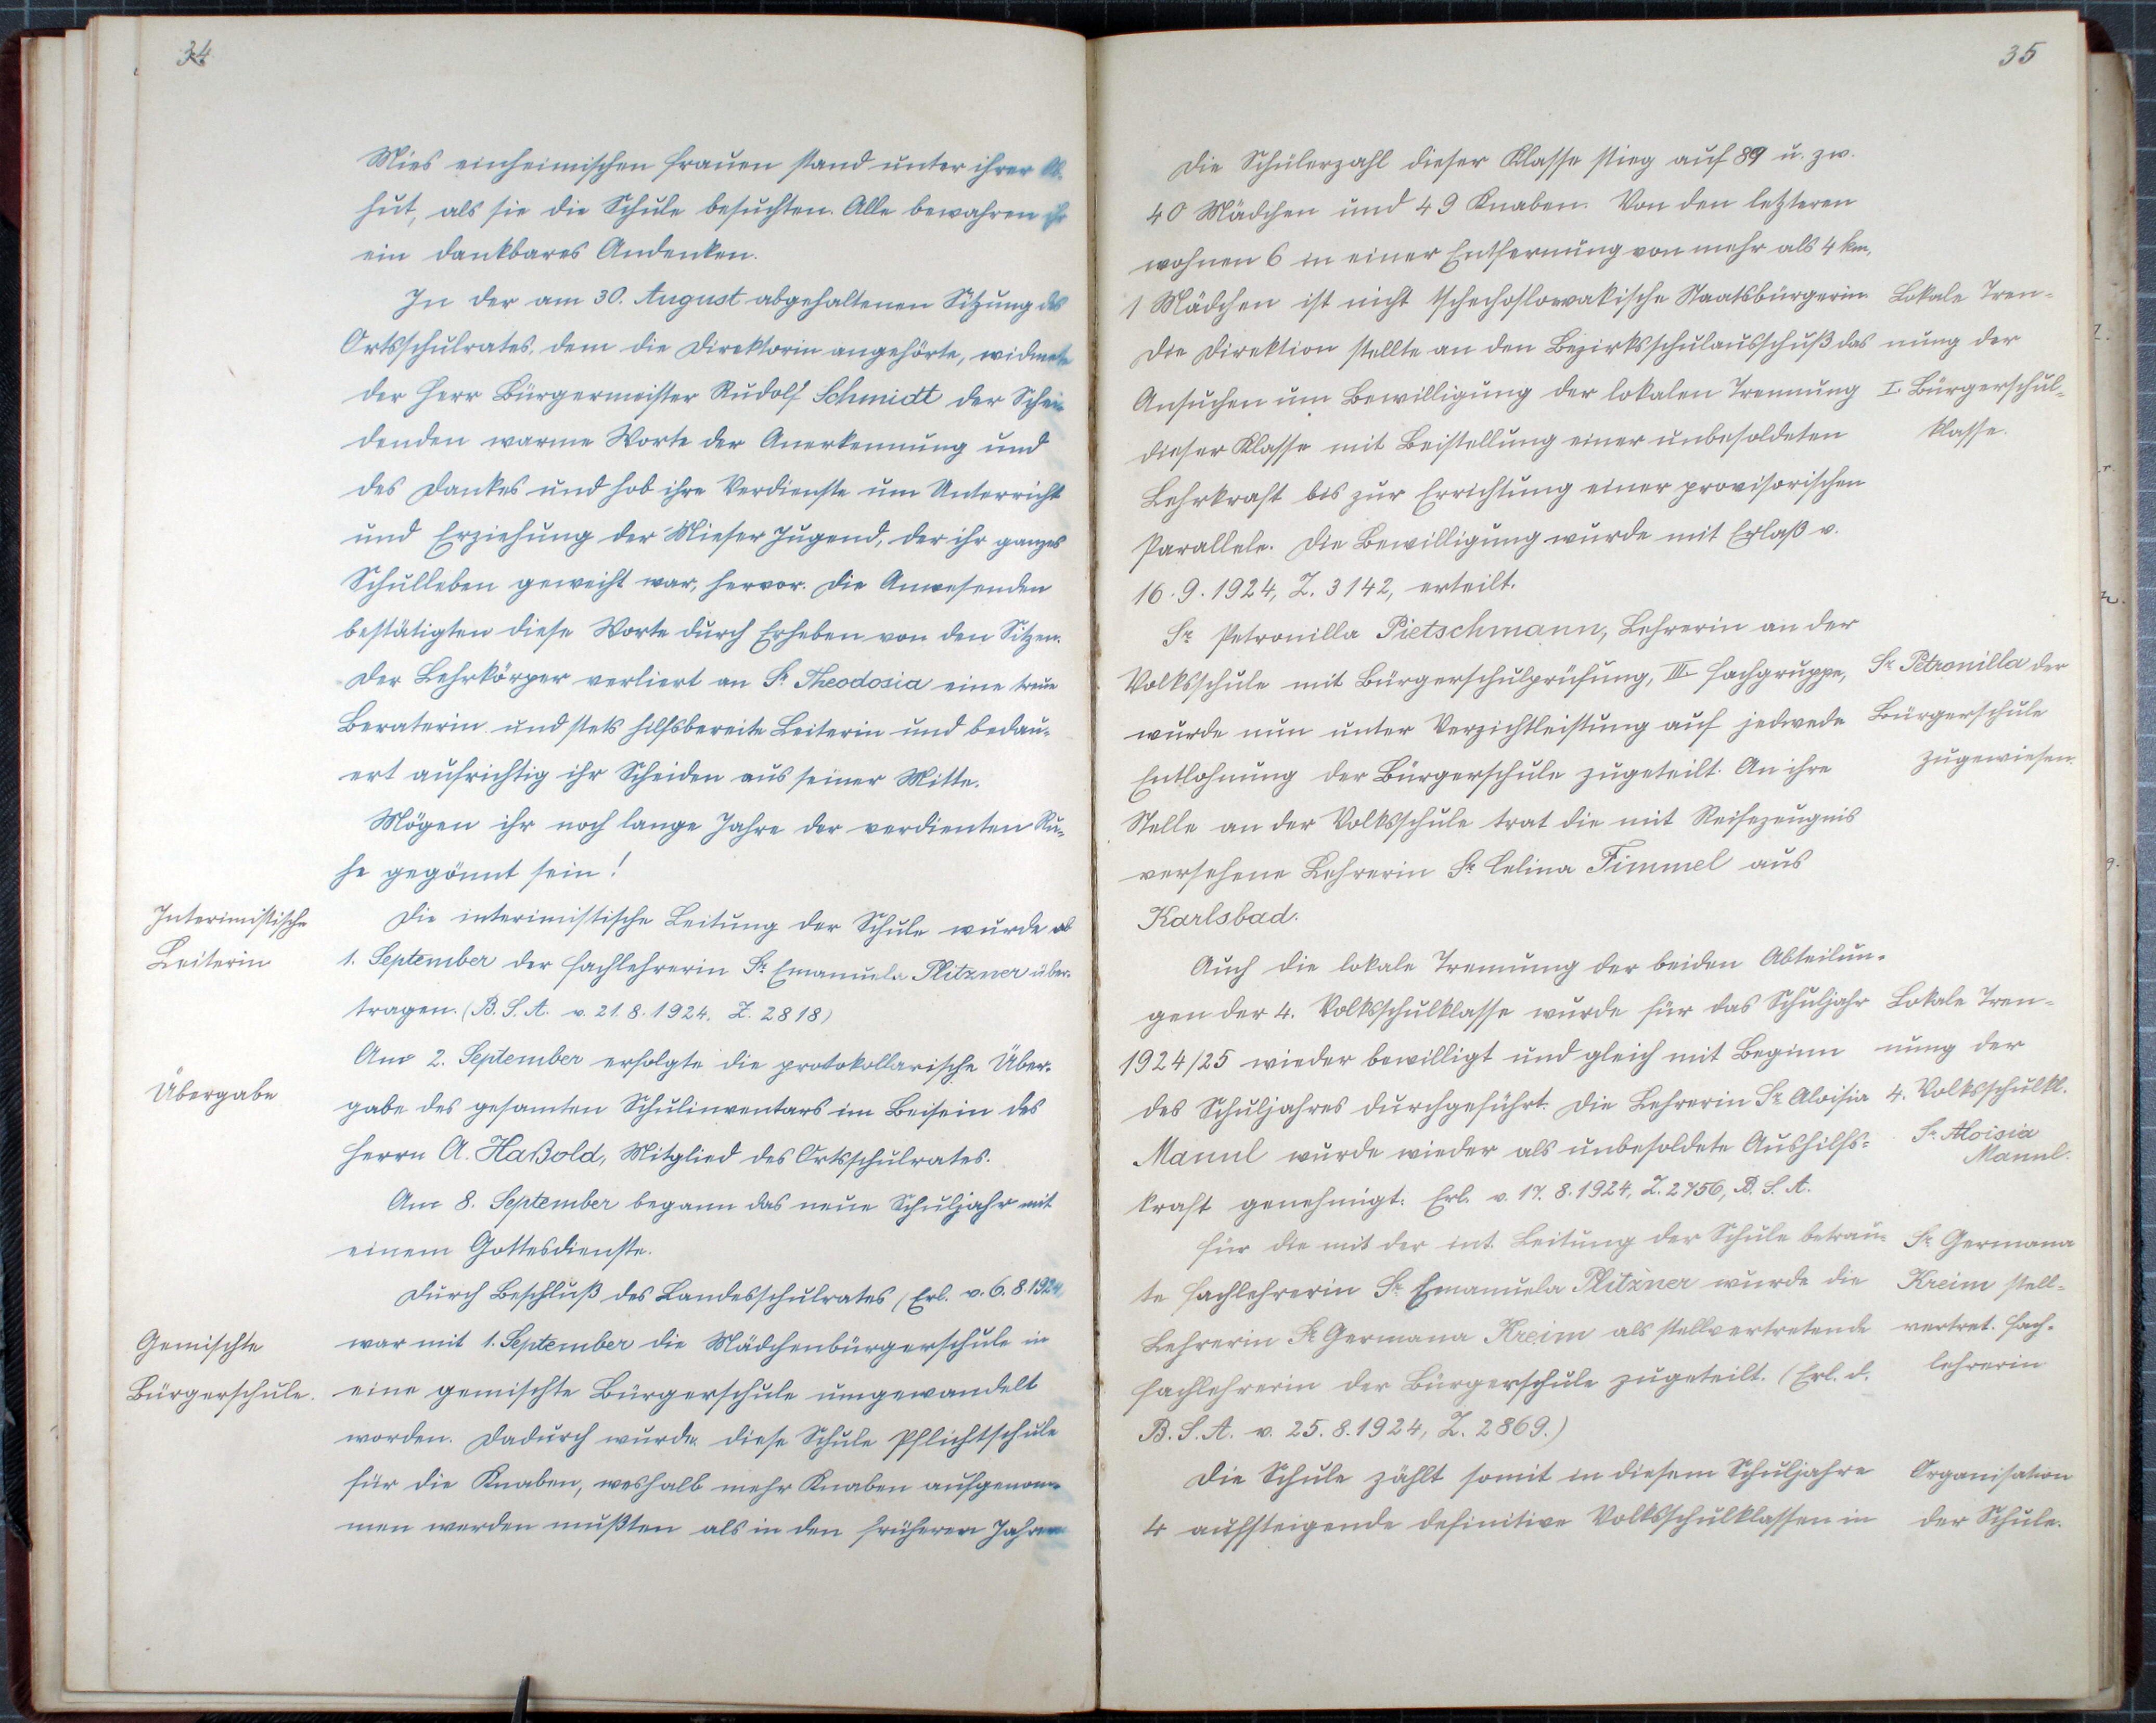 34.
Mies einheimischen Frauen stand unter ihrer Ob-
hut, als sie die Schule besuchten. Alle bewahren ihr
ein dankbares Andenken.
In der am 30. August abgehaltenen Sitzung des
Ortsschulrates, dem die Direktorin angehörte, widmete
der Herr Bürgermeister Rudolf Schmidt der Schei-
denden warme Worte der Anerkennung und
des Dankes und hob ihre Verdienste um Unterricht
und Erziehung der Mieser Jugend, der ihr ganzes
Schulleben geweiht war, hervor. Die Anwesenden
bestätigten diese Worte durch Erheben von den Sitzen.
Der Lehrkörper verliert an Sr. Theodosia eine treue
Beraterin und stets hilfsbereite Leiterin und bedau-
ert aufrichtig ihr Scheiden aus seiner Mitte.
Mögen ihr noch lange Jahre der verdienten Ru-
he gegönnt sein!
Interimistische
Leiterin
Die interimistische Leitung der Schule wurde ab
1. September der Fachlehrerin Sr. Emanuela Plitzner über-
tragen. (B. S. A. v. 21. 8. 1924, Z. 2818)
Am 2. September erfolgte die protokollarische Über-
Übergabe
gabe des gesamten Schulinventars im Beisein des
Herrn A. Haßold, Mitglied des Ortsschulrates.
Am 8. September begann das neue Schuljahr mit
einem Gottesdienste.
Durch Beschluß des Landesschulrates (Erl. v. 6. 8. 1924)
Gemischte
Bürgerschule.
war mit 1. September die Mädchenbürgerschule in
eine gemischte Bürgerschule umgewandelt
worden. Dadurch wurde diese Schule Pflichtschule
für die Knaben, weshalb mehr Knaben aufgenom-
men werden mußten als in den früheren Jahren
35
Die Schülerzahl dieser Klasse stieg auf 89 u. zw.
40 Mädchen und 49 Knaben. Von den letzteren
wohnen 6 in einer Entfernung von mehr als 4 km,
1 Mädchen ist nicht tschechoslowakische Staatsbürgerin.
Die Direktion stellte an den Bezirksschulausschuß das
Ansuchen um Bewilligung der lokalen Trennung
dieser Klasse mit Beistellung einer unbesoldeten
Lehrkraft bis zur Errichtung einer provisorischen
Parallele. Die Bewilligung wurde mit Erlaß v.
16. 9. 1924, Z. 3142, erteilt.
Lokale Tren-
nung der
I. Bürgerschul-
klasse.
Sr. Petronilla Pietschmann, Lehrerin an der
Volksschule mit Bürgerschulprüfung, III. Fachgruppe,
wurde nun unter Verzichtleistung auf jedwede
Entlohnung der Bürgerschule zugeteilt. An ihre
Stelle an der Volksschule trat die mit Reifezeugnis
versehene Lehrerin Sr. Celina Fimmel aus
Karlsbad.
Sr. Petronilla der
Bürgerschule
zugewiesen.
Auch die lokale Trennung der beiden Abteilun-
gen der 4. Volksschulklasse wurde für das Schuljahr
1924/25 wieder bewilligt und gleich mit Beginn
des Schuljahres durchgeführt. Die Lehrerin Sr. Aloisia
Mannl wurde wieder als unbesoldete Aushilfs-
kraft genehmigt. Erl. v. 17. 8. 1924, Z. 2756, B. S. A.
Lokale Tren-
nung der
4. Volksschulkl.
Sr. Aloisia
Mannl.
Für die mit der int. Leitung der Schule betrau-
te Fachlehrerin Sr. Emanuela Plitzner wurde die
Lehrerin Sr. Germana Kreim als stellvertretende
Fachlehrerin der Bürgerschule zugeteilt. (Erl. d.
B. S. A. v. 25. 8. 1924, Z. 2869.)
Sr. Germana
Kreim stell-
vertret. Fach-
lehrerin
Die Schule zählt somit in diesem Schuljahre
4 aufsteigende definitive Volksschulklassen in
Organisation
der Schule.